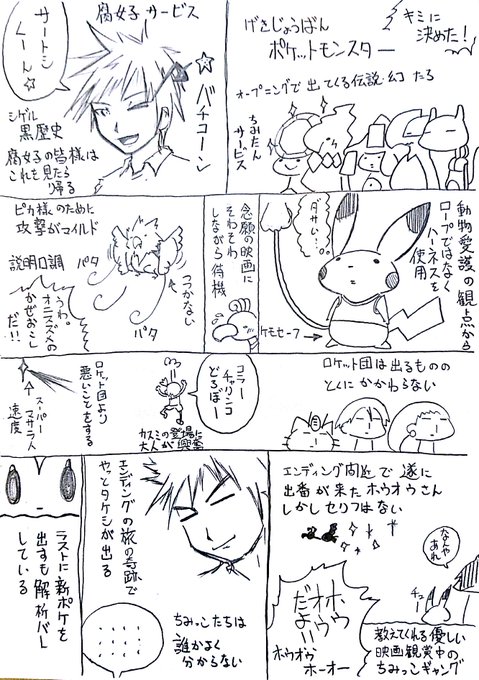 キミに
決めた！
げきじょうばん
ポケットモンスター
オープニングで出てくる伝説幻たる
ちみたん
サービス
腐女子サービス
サートシ
くーん☆
☆バチコーン
シゲル
黒歴史
腐女子の皆様は
これを見たら
帰る
動物愛護の観点から
ロープではなく
ハーネスを
使用
ダサい…。
ケモセーフ
念願の映画に
そわそわ
しながら待機
ピカ様のために
攻撃がマイルド
パタ
パタ
つつかない
説明口調
うわ。
オニスズメの
かぜおこし
だ！！
ロケット団は出るものの
とくにかかわらない
コラー
チャリンコ
どろぼー
カスミの登場に
大人が興奮
ロケット団より
悪いことをする
スーパー
マサラ人
速度
エンディング間近で遂に
出番が来たホウオウさん
しかしセリフはない
なんや
あれ
チュー
ホウ
オウ
だよ！！
ホウオウ
ホーオー
教えてくれる優しい
映画観賞中の
ちみっこギャング
エンディングの旅の奇跡で
やっとタケシが出る
ちみっこたちは
誰かよく
分からない
......
ラストに新ポケを
出すも解析バレ
している